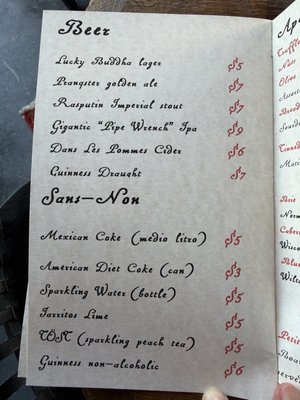 Beer
Lucky Buddha lager $5
Prangster golden ale $7
Rasputin Imperial stout $7
Gigantic "Pipe Wrench" Ipa $9
Dans Les Pommes Cider $6
Guinness Draught $7
Sans-Non
Mexican Coke (medio litro) $5
American Diet Coke (can) $3
Sparkling Water (bottle) $5
Jarritos Lime $5
TÖST (sparkling peach tea) $5
Guinness non-alcoholic $6
Ap
Truffle
Nuts
Olive
Assort
Bread
Tinned
Brie
Wisco
Blue